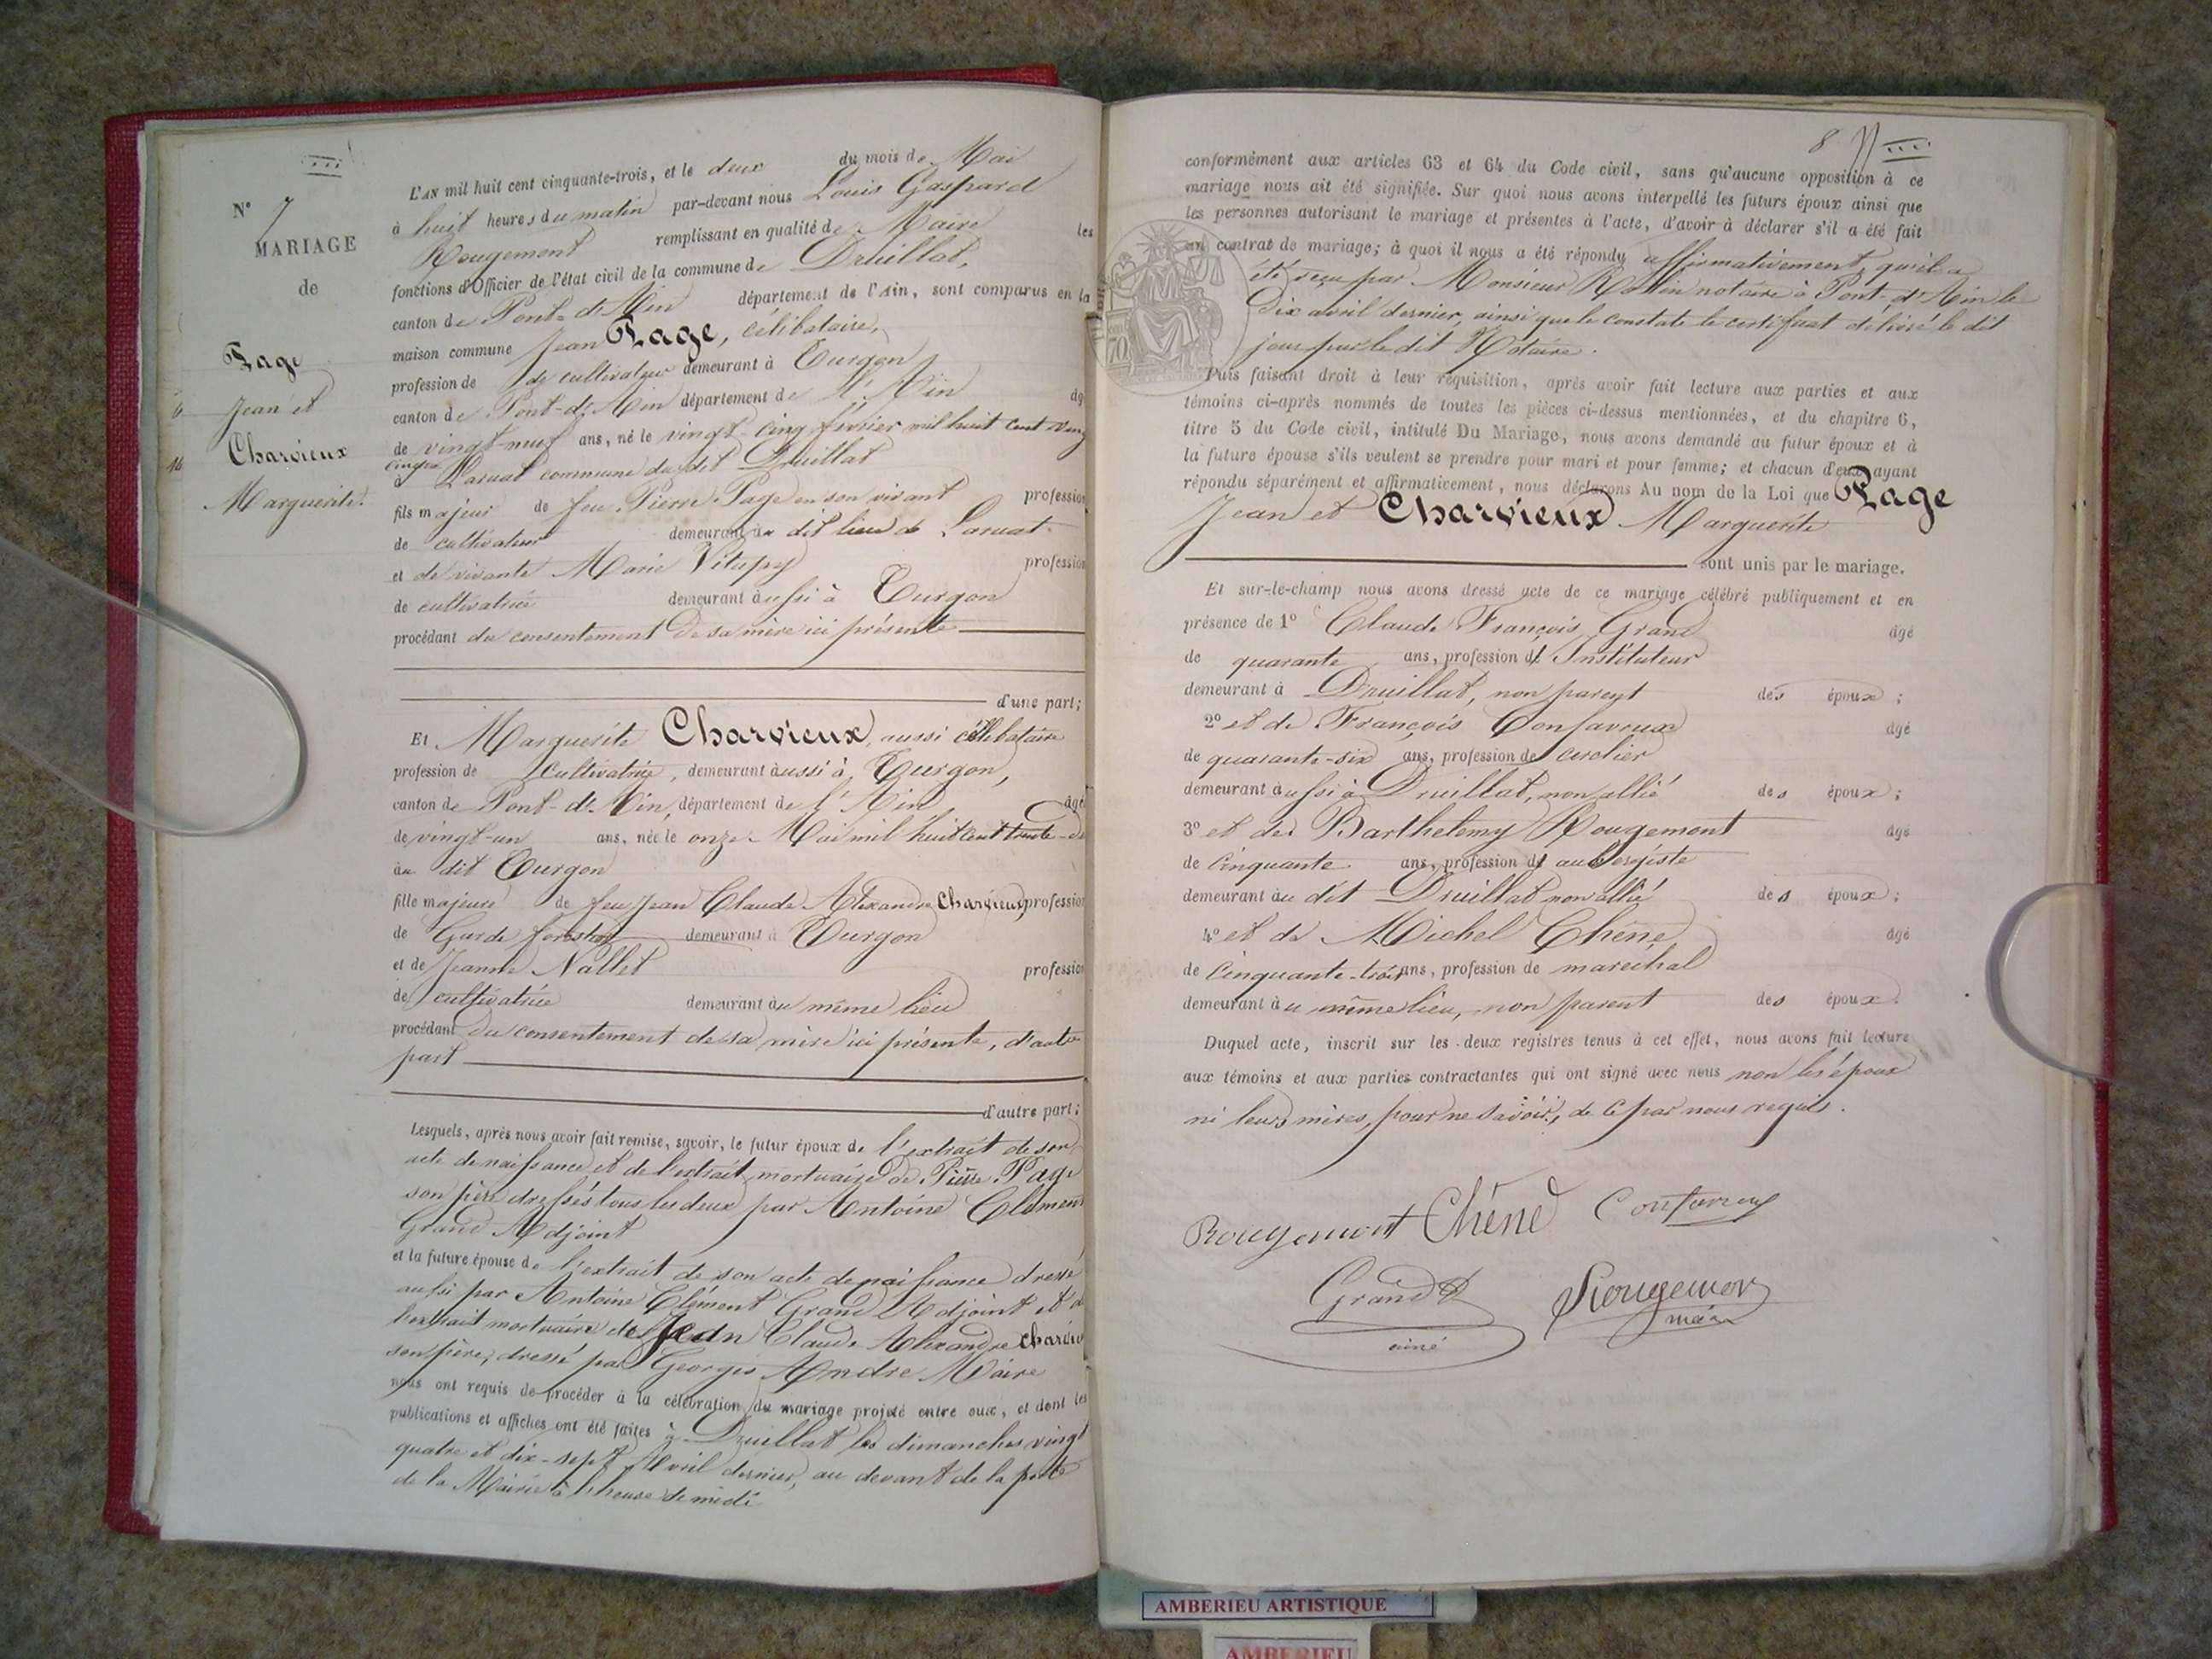 N° 7
MARIAGE
de
Page
Jean et
Charvieux
Marguerite.
6
16
L'AN mil huit cent cinquante-trois, et le deux du mois de Mai
à huit heures du matin par-devant nous Louis Gaspard
Rougemont remplissant en qualité de Maire les
fonctions d'Officier de l'état civil de la commune de Druillat,
canton de Pont-d'Ain département de l'Ain, sont comparus en la
maison commune Jean Page, célibataire,
profession de de cultivateur demeurant à Turgon
canton de Pont-d'Ain département de l'Ain âgé
de vingt-neuf ans, né le vingt-cinq février mil huit cent vingt
à commune du dit Druillat
fils majeur de feu Pierre Page en son vivant profession
de cultivateur demeurant au dit lieu de
et de vivante Marie profession
de cultivatrice demeurant aussi à Turgon
procédant du consentement de sa mère ici présente
d'une part;
Et Marguerite Charvieux, aussi célibataire
profession de Cultivatrice, demeurant aussi à Turgon,
canton de Pont-d'Ain, département de l'Ain, âgée
de vingt-un ans, née le onze Mai mil huit cent trente-
au dit Turgon
fille majeure de feu Jean Claude Alexandre Charvieux profession
de Garde forestier demeurant à Turgon
et de Jeanne Nallet profession
de cultivatrice demeurant au même lieu
procédant du consentement de sa mère ici présente, d'autre
part
d'autre part;
Lesquels, après nous avoir fait remise, savoir, le futur époux de l'extrait de son
acte de naissance et de l'extrait mortuaire de Pierre Page
son père dressés tous les deux par Antoine Clément
Grand Adjoint
et la future épouse de l'extrait de son acte de naissance dressé
aussi par Antoine Clément Grand Adjoint et de
l'extrait mortuaire de Jean Claude Alexandre Charvieux
son père, dressé par Georges Andre Maire
nous ont requis de procéder à la célébration du mariage projeté entre eux, et dont les
publications et affiches ont été faites à Druillat les dimanches vingt
quatre et dix-sept Avril dernier, au devant de la porte
de la Mairie à l'heure de midi
8
conformément aux articles 63 et 64 du Code civil, sans qu'aucune opposition à ce
mariage nous ait été signifiée. Sur quoi nous avons interpellé les futurs époux ainsi que
les personnes autorisant le mariage et présentes à l'acte, d'avoir à déclarer s'il a été fait
un contrat de mariage; à quoi il nous a été répondu affirmativement, qu'il a
été reçu par Monsieur notaire à Pont-d'Ain le
Dix avril dernier, ainsi que le constate le certificat délivré le dit
jour par le dit Notaire.
Puis faisant droit à leur réquisition, après avoir fait lecture aux parties et aux
témoins ci-après nommés de toutes les pièces ci-dessus mentionnées, et du chapitre 6,
titre 5 du Code civil, intitulé Du Mariage, nous avons demandé au futur époux et à
la future épouse s'ils veulent se prendre pour mari et pour femme; et chacun d'eux ayant
répondu séparément et affirmativement, nous déclarons Au nom de la Loi que Page
Jean et Charvieux Marguerite
sont unis par le mariage.
Et sur-le-champ nous avons dressé acte de ce mariage célébré publiquement et en
présence de 1° Claude François Grand âgé
de quarante ans, profession d'Instituteur
demeurant à Druillat, non parent des époux;
2° et de François Confavreux âgé
de quarante-six ans, profession de
demeurant aussi à Druillat, non allié des époux;
3° et de Barthelemy Rougemont âgé
de Cinquante ans, profession d'aubergiste
demeurant au dit Druillat non allié des époux;
4° et de Michel Chêne âgé
de Cinquante-trois ans, profession de maréchal
demeurant au même lieu, non parent des époux.
Duquel acte, inscrit sur les deux registres tenus à cet effet, nous avons fait lecture
aux témoins et aux parties contractantes qui ont signé avec nous non les époux
ni leurs mères, pour ne savoir, de ce par nous requis.
Rougemont Chêne Confavreux
Grand Rougemont
ainé maire
AMBERIEU ARTISTIQUE
AMBERIEU